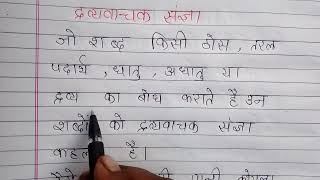 द्रव्यवाचक संज्ञा
जो शब्द किसी ठोस , तरल
पदार्थ , धातु , अधातु या
द्रव्य का बोध कराते है उन
शब्दों को द्रव्यवाचक संज्ञा
है।